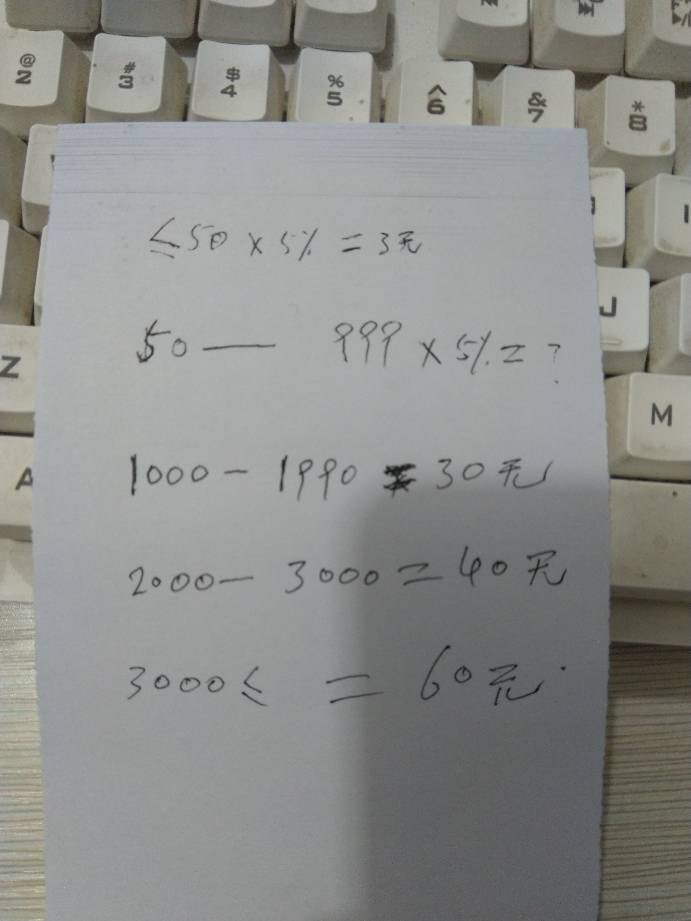 @ 2
# 3
$ 4
% 5
^ 6
& 7
* 8
I
J
Z
M
A
≤50×5%=3元
50— 999×5%=?
1000-1990 30元
2000- 3000=40元
3000≤ =60元.